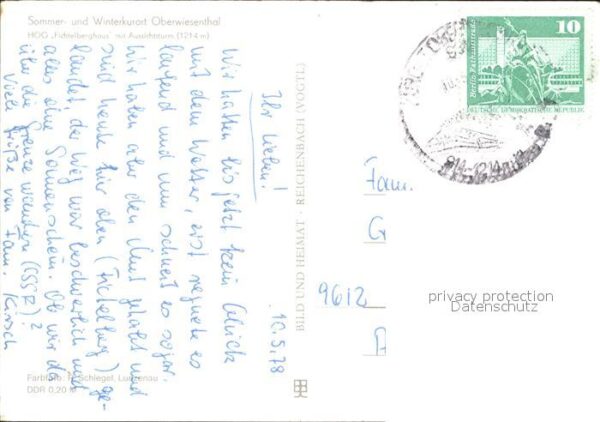 Sommer- und Winterkurort Oberwiesenthal
HOG „Fichtelberghaus" mit Aussichtsturm (1214 m)
10.5.78
Ihr Lieben!
Wir hatten bis jetzt kein Glück
mit dem Wetter, erst regnete es
laufend und nun schneit es sogar.
Wir haben aber den Mut gehabt und
sind heute hier oben (Fichtelberg) ge-
landet, der Weg war beschwerlich und
alles ohne Sonnenschein. Ob wir da
über die Grenze wandern (ČSSR)?
Viele Grüße von Fam. Kirsch
Farbfoto: Schlegel, Lunzenau
DDR 0,20 M
BILD UND HEIMAT · REICHENBACH (VOGTL)
10
DEUTSCHE DEMOKRATISCHE REPUBLIK
Fam.
G
9612
privacy protection
Datenschutz